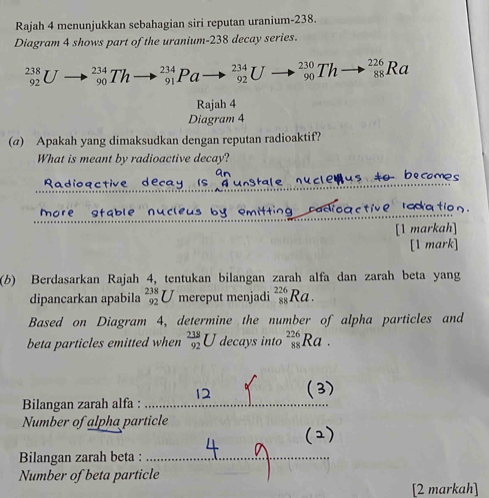 Rajah 4 menunjukkan sebahagian siri reputan uranium-238.
Diagram 4 shows part of the uranium-238 decay series.
²³⁸₉₂U → ²³⁴₉₀Th → ²³⁴₉₁Pa → ²³⁴₉₂U → ²³⁰₉₀Th → ²²⁶₈₈Ra
Rajah 4
Diagram 4
(a) Apakah yang dimaksudkan dengan reputan radioaktif?
What is meant by radioactive decay?
an
Radioactive decay is a unstale nucleus to becomes
more stable nucleus by emitting radioactive radation.
[1 markah]
[1 mark]
(b) Berdasarkan Rajah 4, tentukan bilangan zarah alfa dan zarah beta yang
dipancarkan apabila ²³⁸₉₂U mereput menjadi ²²⁶₈₈Ra.
Based on Diagram 4, determine the number of alpha particles and
beta particles emitted when ²³⁸₉₂U decays into ²²⁶₈₈Ra .
Bilangan zarah alfa : 12 (3)
Number of alpha particle
Bilangan zarah beta : 4 (2)
Number of beta particle
[2 markah]